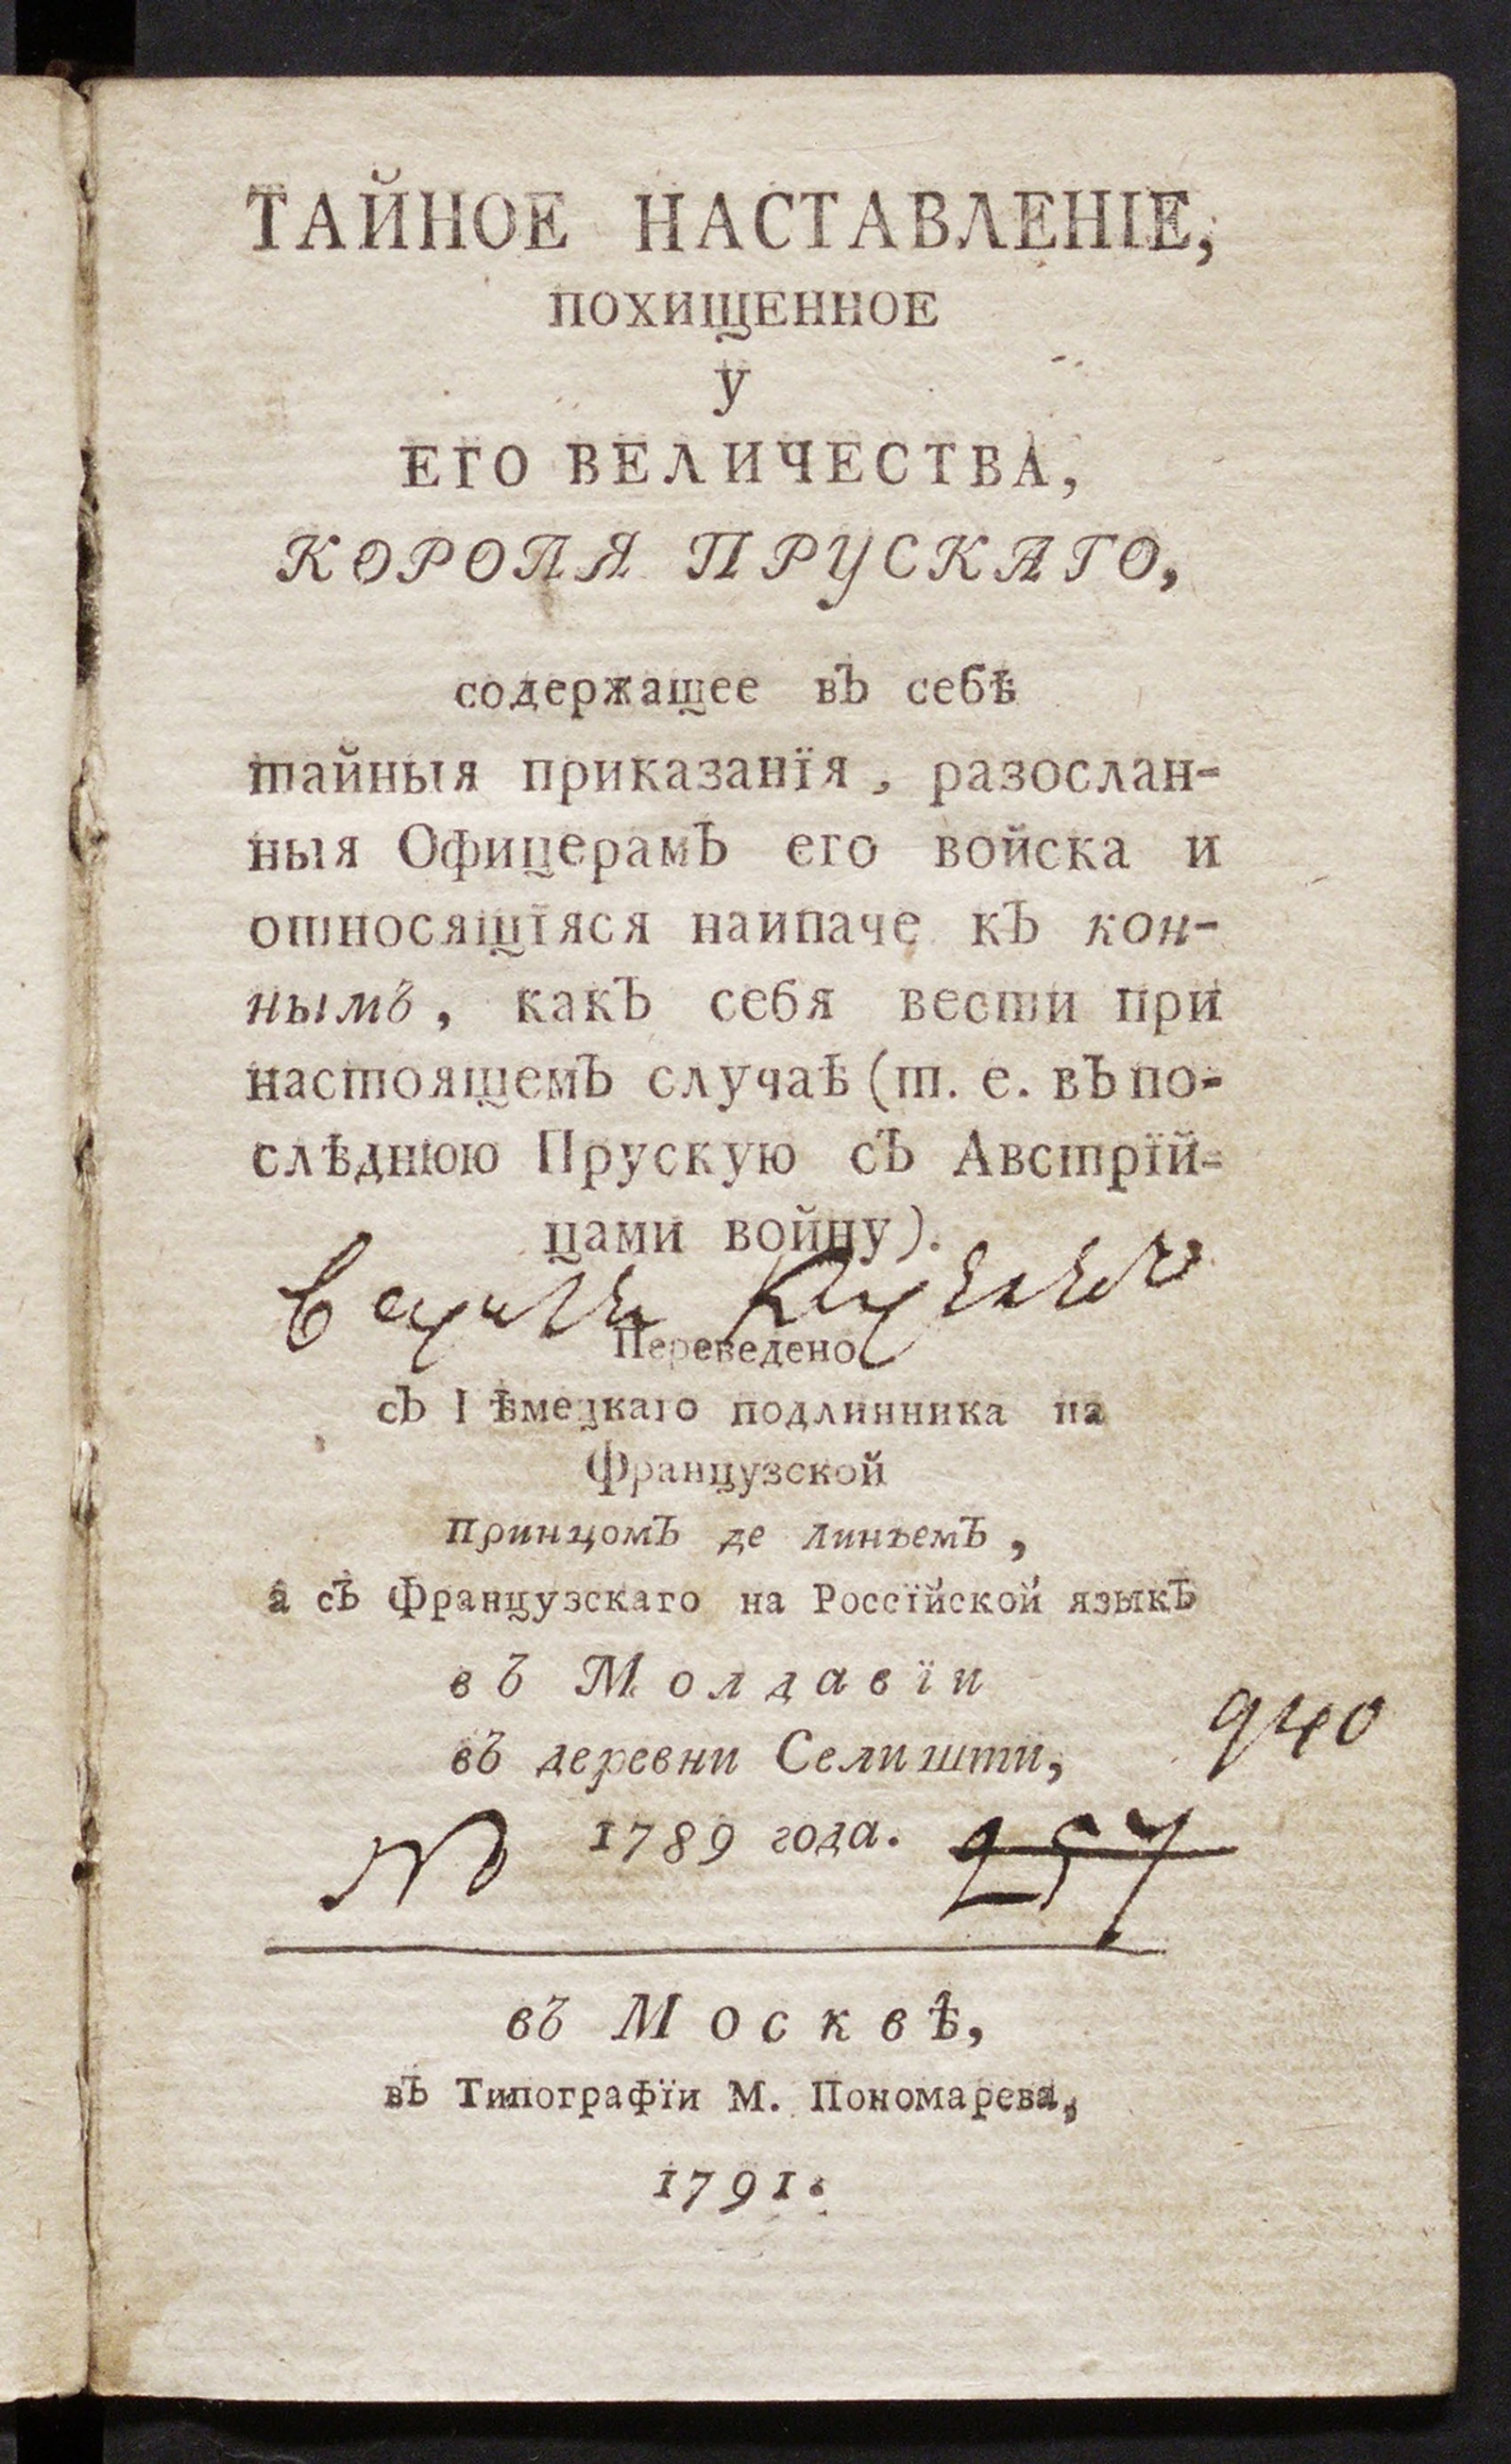 ТАЙНОЕ НАСТАВЛЕНІЕ,
ПОХИЩЕННОЕ
У
ЕГО ВЕЛИЧЕСТВА,
КОРОЛЯ ПРУСКАГО,
содержащее въ себѣ
тайныя приказанїя, разослан-
ныя Офицерамъ его войска и
относящїяся наипаче къ кон-
нымъ, какъ себя вести при
настоящемъ случаѣ (т. е. въ по-
слѣднюю Прускую съ Австрїй-
цами войну).
Переведено
съ Нѣмецкаго подлинника на
Французской
Принцомъ де Линьемъ,
а съ Французскаго на Россїйской языкъ
въ Молдавїи
въ деревни Селишти,
940
1789 года.
257
въ Москвѣ,
въ Типографїи М. Пономарева,
1791.